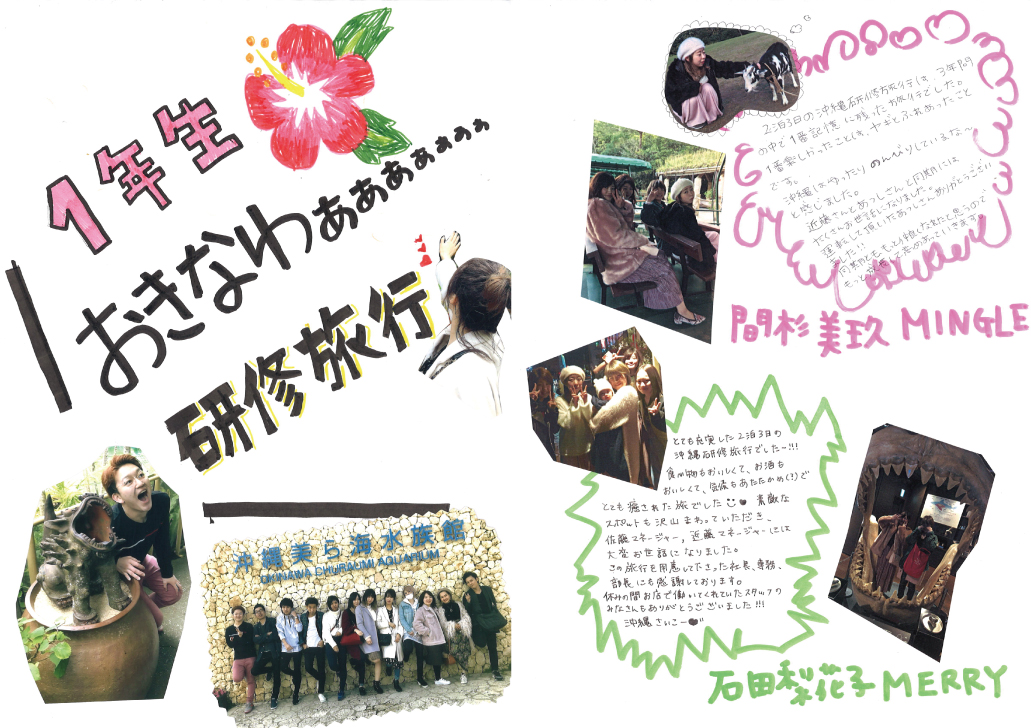 1年生
おきなわぁぁぁぁぁぁ
研修旅行
沖縄美ら海水族館
OKINAWA CHURAUMI AQUARIUM
2泊3日の沖縄研修旅行は、3年間
の中で1番記憶に残った旅行でした。
1番楽しかったことは、ヤギとふれあったこと
です。
沖縄はゆったりのんびりしているな〜
と感じました。
近藤さんとあっしさんと同期には
たくさんお世話になりました。
運転して頂いたあっしさんありがとうござい
ました!!
同期とももっと仲良くなれたと思うので
間杉美玖 MINGLE
とても充実した2泊3日の
沖縄研修旅行でした〜!!!
食べ物もおいしくて、お酒も
おいしくて、気候もあたたかめ(?)で
とても癒された旅でした 素敵な
スポットも沢山まわっていただき、
佐藤マネージャー、近藤マネージャーには
大変お世話になりました。
この旅行を用意してくださった社長、専務、
部長にも感謝しております。
休みの間お店で働いてくれていたスタッフの
みなさんもありがとうございました!!!
沖縄さいこ〜
石田梨花子 MERRY